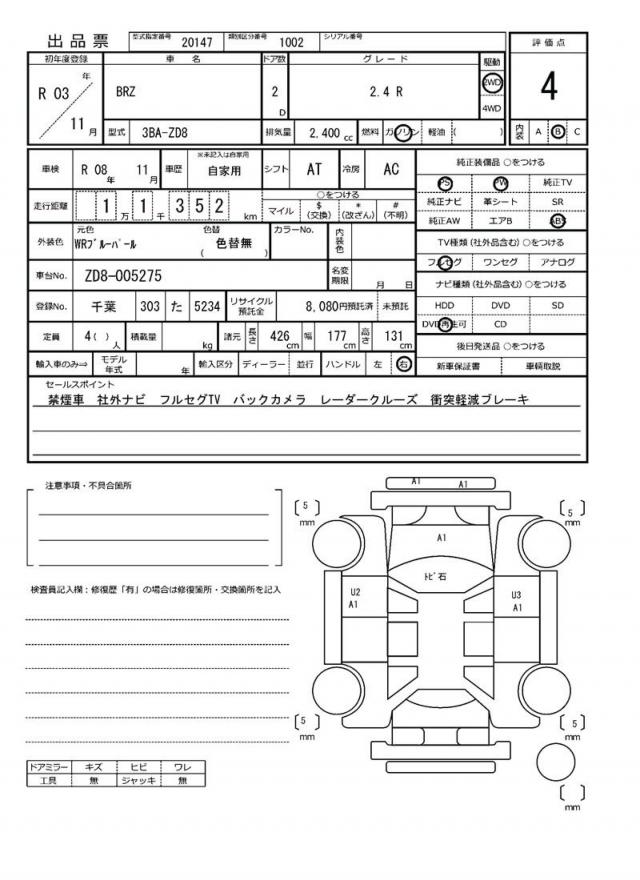 出品票 型式指定番号 20147 類別区分番号 1002 シリアル番号
評価点
4
内装 A B C
初年度登録 車名 ドア数 グレード 駆動
R 03 年 11 月 BRZ 2 D 2.4 R 2WD 4WD
型式 3BA-ZD8 排気量 2,400 cc 燃料 ガソリン 軽油 ( )
車検 R 08 年 11 月 車歴 ※未記入は自家用 自家用 シフト AT 冷房 AC
走行距離 1 万 1 千 3 5 2 km ○をつける マイル $ (交換) * (改ざん) # (不明)
外装色 元色 WRブルーパール 色替 ( 色替無 ) カラーNo. 内装色
車台No. ZD8-005275 名変期限 月 日
登録No. 千葉 303 た 5234 リサイクル預託金 8,080円預託済 未預託
定員 4( ) 人 積載量 kg 諸元 長さ 426 cm 幅 177 cm 高さ 131 cm
輸入車のみ⇒ モデル年式 年 輸入区分 ディーラー 並行 ハンドル 左 右
純正装備品 ○をつける
PS PW 純正TV
純正ナビ 革シート SR
純正AW エアB ABS
TV種類 (社外品含む) ○をつける
フルセグ ワンセグ アナログ
ナビ種類 (社外品含む) ○をつける
HDD DVD SD
DVD再生可 CD
後日発送品 ○をつける
新車保証書 車輌取説
セールスポイント
禁煙車 社外ナビ フルセグTV バックカメラ レーダークルーズ 衝突軽減ブレーキ
注意事項・不具合箇所
検査員記入欄：修復歴「有」の場合は修復箇所・交換箇所を記入
ドアミラー キズ ヒビ ワレ
工具 無 ジャッキ 無
A1 A1
[ 5 ] mm
[ 5 ] mm
A1
トビ石
U2 A1
U3 A1
[ 5 ] mm
[ 5 ] mm
[ ] mm